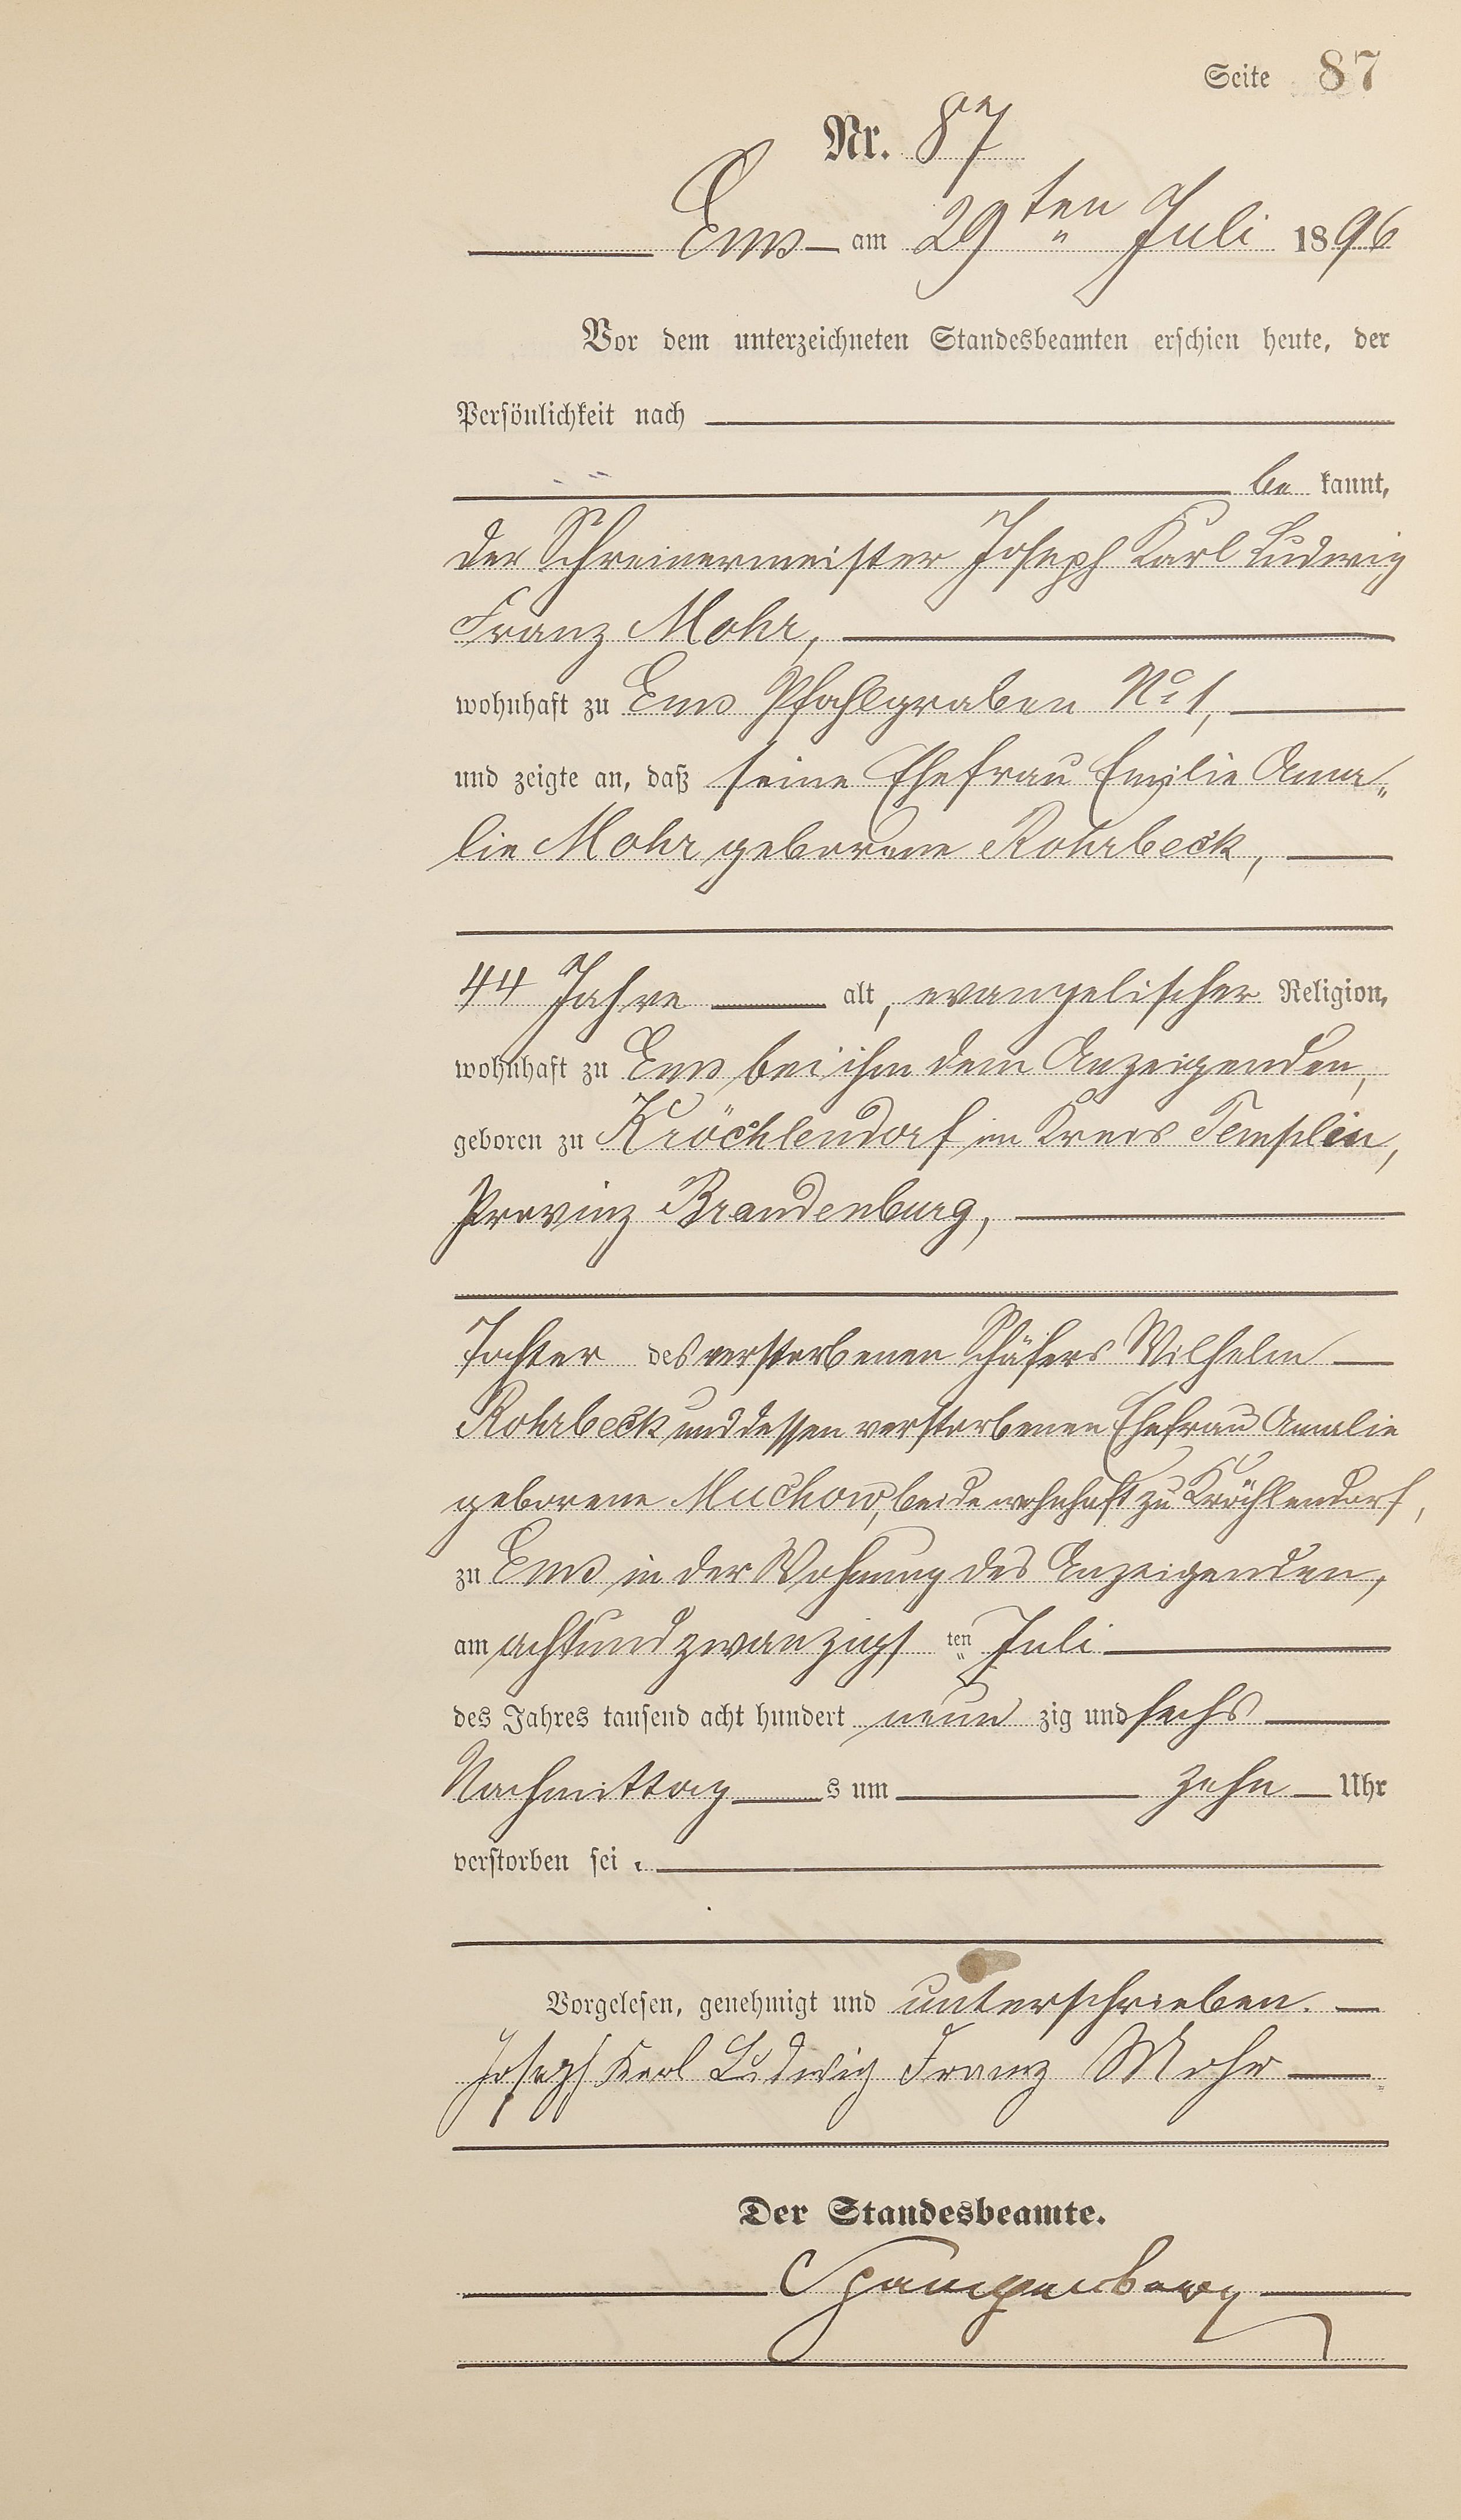 Seite 87
Nr. 87
Ems am 29ten Juli 1896
Vor dem unterzeichneten Standesbeamten erschien heute, der
Persönlichkeit nach
be kannt,
der Schreinermeister Joseph Karl Ludwig
Franz Mohr,
wohnhaft zu Ems Pfahlgraben No 1,
und zeigte an, daß seine Ehefrau Emilie Ama„
lie Mohr geborene Rohrbeck,
44 Jahre alt, evangelischer Religion,
wohnhaft zu Ems bei ihm dem Anzeigenden,
geboren zu Kröchlendorf im Kreis Templin,
Provinz Brandenburg,
Tochter des verstorbenen Schäfers Wilhelm
Rohrbeck und dessen verstorbenen Ehefrau Amalie
geborene Muchow, beide wohnhaft zu Kröchlendorf,
zu Ems in der Wohnung des Anzeigenden,
am achtundzwanzigs ten Juli
des Jahres tausend acht hundert neun zig und sechs
Nachmittag s um zehn Uhr
verstorben sei.
Vorgelesen, genehmigt und unterschrieben.
Joseph Karl Ludwig Franz Mohr
Der Standesbeamte.
Spangenberg